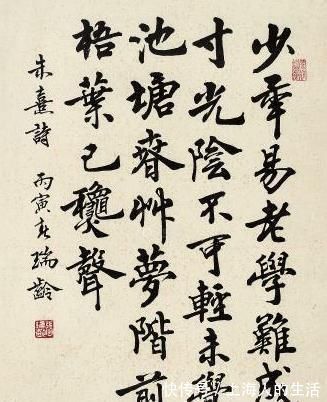 少年易老學難成
寸光陰不可輕未覺
池塘春艸夢階前
梧葉已龝聲
朱熹詩 丙寅春 瑞齡
快传号/上海人的生活